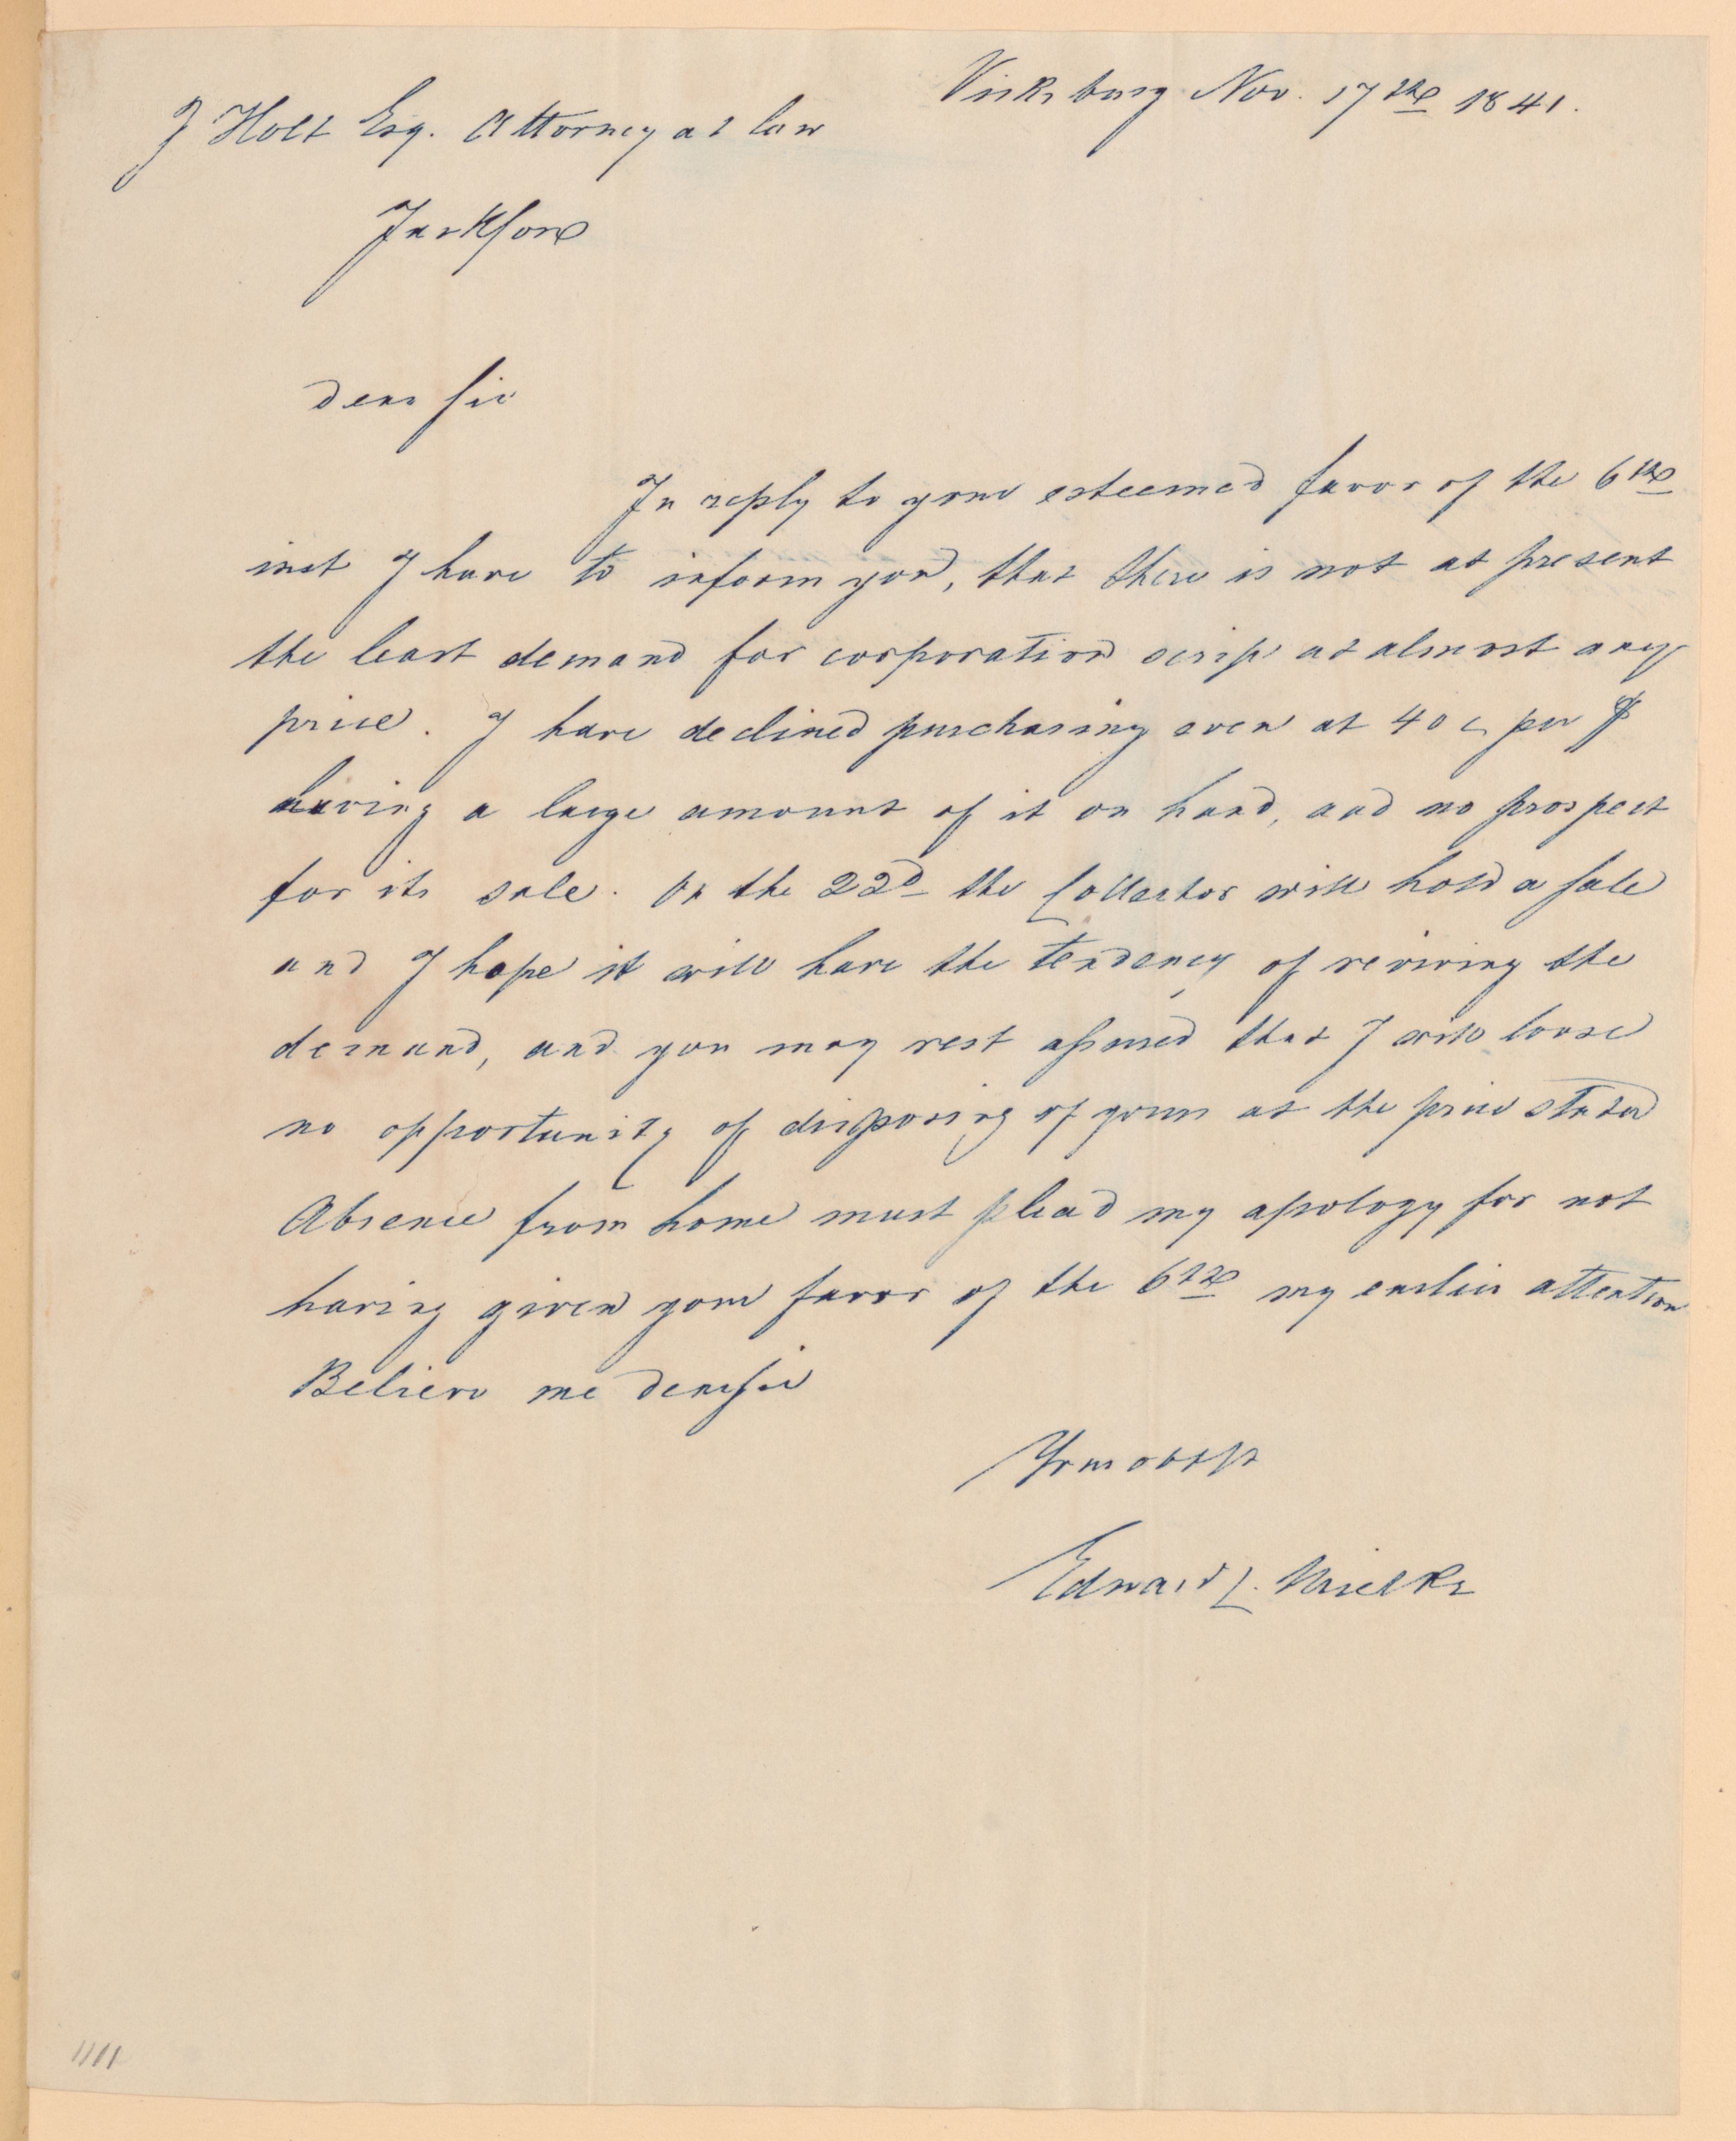 Vicksburg Nov. 17th 1841.
J Holt Esq. Attorney at law
Jackson
Dear Sir
In reply to your esteemed favor of the 6th
inst I have to inform you, that there is not at present
the least demand for corporation scrip at almost any
price. I have declined purchasing even at 40 c per $
having a large amount of it on hand, and no prospect
for its sale. On the 22d the Collector will hold a sale
and I hope it will have the tendency of reviving the
demand, and you may rest assured that I will loose
no opportunity of disposing of yours at the price stated
Absence from home must plead my apology for not
having given your favor of the 6th my earlier attention
Believe me dear sir
Your obt St
Edward L. Mielke
1111